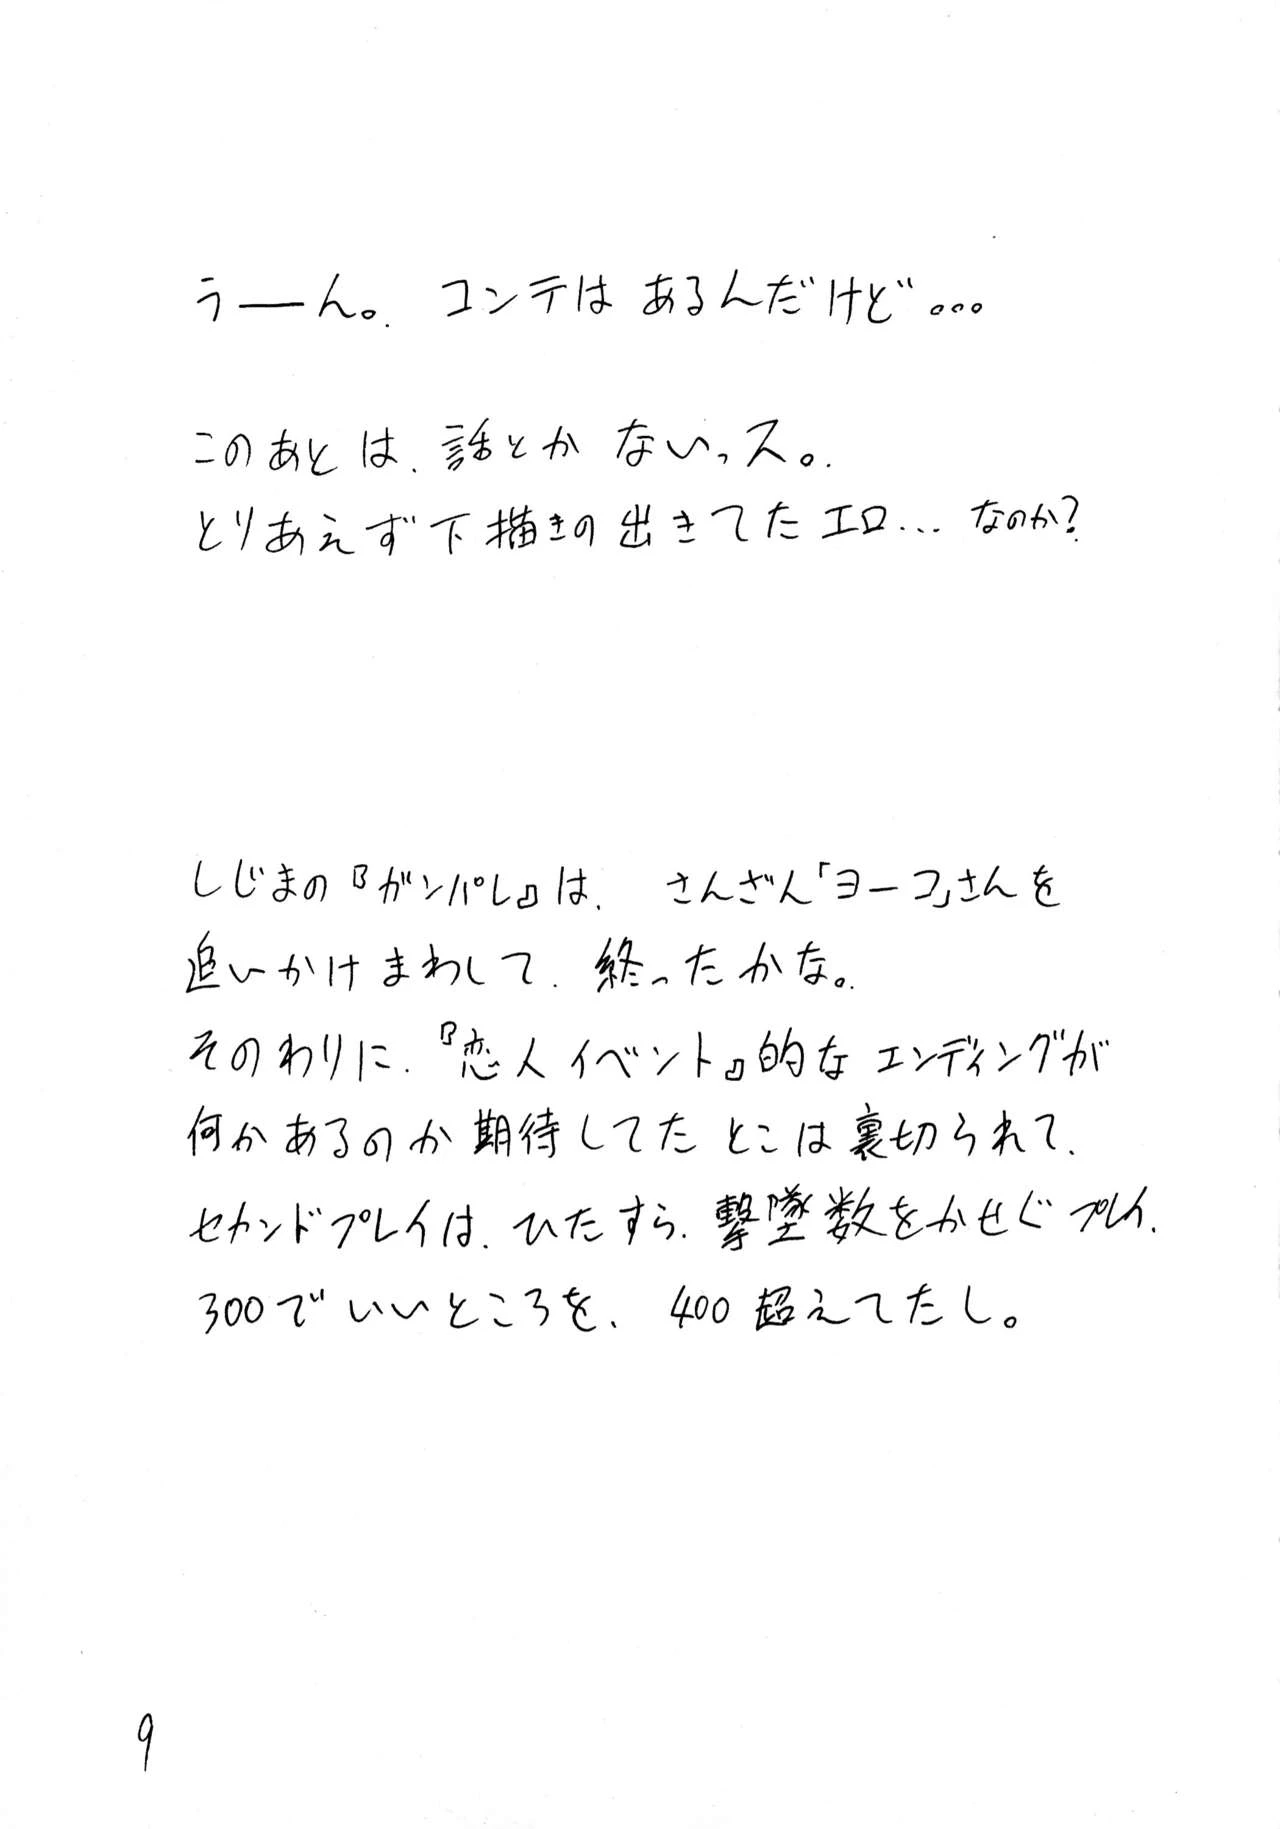 うーん。コンテはあるんだけど...
このあとは、話とかないっス。
とりあえず下描きの出きてたエロ...なのか?
しじまの『ガンパレ』は、さんざん「ヨーコ」さんを
追いかけまわして、終ったかな。
そのわりに、『恋人イベント』的なエンディングが
何かあるのか期待してたとこは裏切られて、
セカンドプレイは、ひたすら、撃墜数をかせぐプレイ、
300でいいところを、400超えてたし。
9